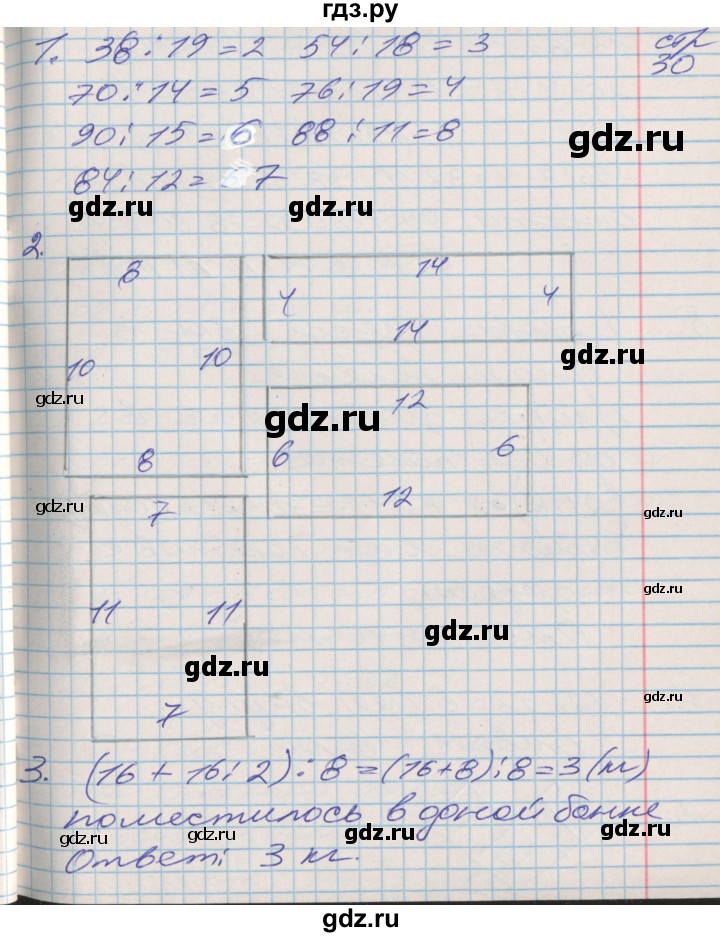 гдз.ру
стр
30
1. 38:19=2 54:18=3
70:14=5 76:19=4
90:15=6 88:11=8
84:12=7
gdz.ru gdz.ru gdz.ru
2.
8 14
4 4
10 10 14
gdz.ru
gdz.ru
12
gdz.ru
8 6 6
12
gdz.ru
7 gdz.ru
gdz.ru
11 11
gdz.ru
gdz.ru
gdz.ru
7
3. (16+16:2):8=(16+8):8=3(кг)
поместилось в одной банке
gdz.ru gdz.ru gdz.ru
Ответ: 3 кг.
gdz.ru